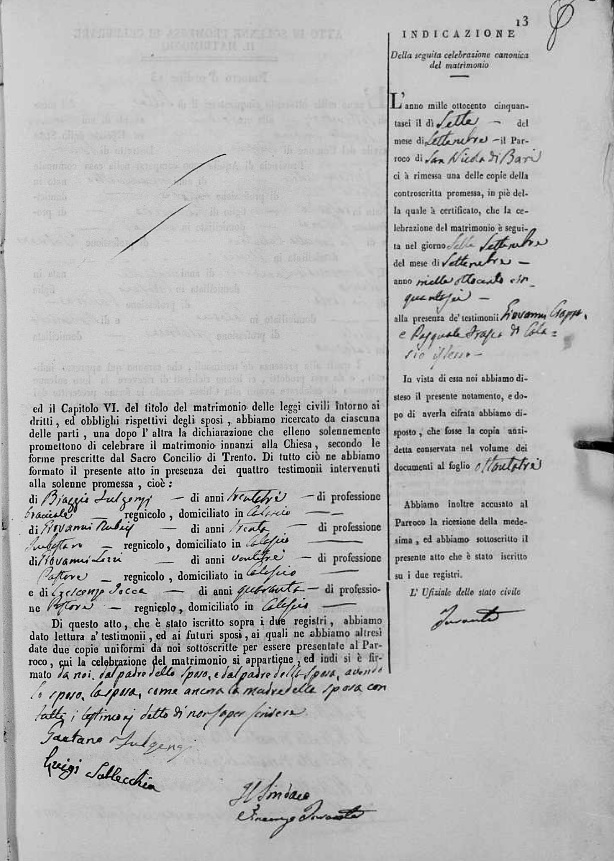 13
INDICAZIONE
Della seguita celebrazione canonica
del matrimonio
L'anno mille ottocento cinquan-
tasei il dì Sette — del
mese di Settembre — il Par-
roco di San Nicola di Bari
ci à rimessa una delle copie della
controscritta promessa, in piè del-
la quale à certificato, che la ce-
lebrazione del matrimonio è segui-
ta nel giorno Sette Settembre
del mese di Settembre —
anno mille ottocento cin-
quantasei —
alla presenza de' testimonii Giovanni
e Pasquale di Cala-
scio
In vista di essa noi abbiamo di-
steso il presente notamento, e do-
po di averla cifrata abbiamo di-
sposto, che fosse la copia anzi-
detta conservata nel volume dei
documenti al foglio ottantotré
Abbiamo inoltre accusato al
Parroco la ricezione della mede-
sima, ed abbiamo sottoscritto il
presente atto che è stato iscritto
su i due registri.
L' Ufiziale dello stato civile
ed il Capitolo VI. del titolo del matrimonio delle leggi civili intorno ai
dritti, ed obblighi rispettivi degli sposi, abbiamo ricercato da ciascuna
delle parti, una dopo l'altra la dichiarazione che elleno solennemente
promettono di celebrare il matrimonio innanzi alla Chiesa, secondo le
forme prescritte dal Sacro Concilio di Trento. Di tutto ciò ne abbiamo
formato il presente atto in presenza dei quattro testimonii intervenuti
alla solenne promessa, cioè:
di Biaggio Fulgenzi — di anni trentatre — di professione
regnicolo, domiciliato in Calascio —
di Giovanni — di anni trenta — di professione
— regnicolo, domiciliato in Calascio —
di Giovanni — di anni ventitre — di professione
Pastore — regnicolo, domiciliato in Calascio —
e di — di anni quaranta — di professio-
ne Pastore — regnicolo, domiciliato in Calascio —
Di questo atto, che è stato iscritto sopra i due registri, abbiamo
dato lettura a' testimonii, ed ai futuri sposi, ai quali ne abbiamo altresì
date due copie uniformi da noi sottoscritte per essere presentate al Par-
roco, cui la celebrazione del matrimonio si appartiene, ed indi si è fir-
mato da noi, dal padre dello sposo, e dal padre della sposa, avendo
lo sposo, la sposa, come ancora la madre della sposa con
tutti i testimonj detto di non saper scrivere
Gaetano Fulgenzi
Luigi Sablecchia
Il Sindaco